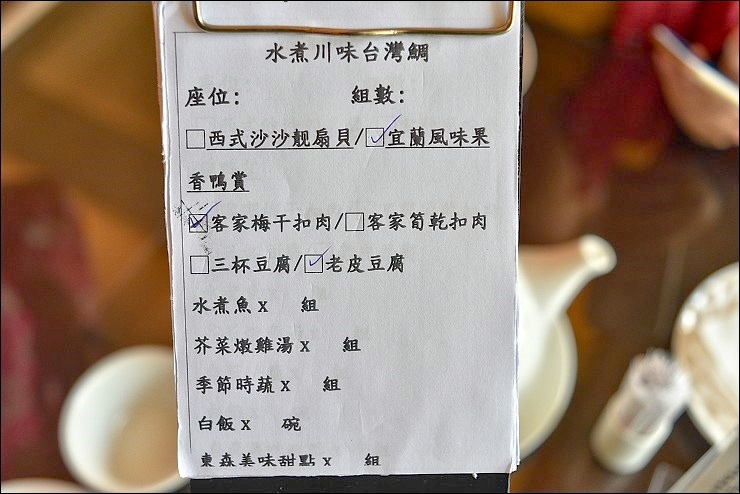 水煮川味台灣鯛
座位: 組數:
□西式沙沙靚扇貝/☑宜蘭風味果
香鴨賞
☑客家梅干扣肉/□客家筍乾扣肉
□三杯豆腐/☑老皮豆腐
水煮魚x 組
芥菜燉雞湯x 組
季節時蔬x 組
白飯x 碗
東森美味甜點x 組